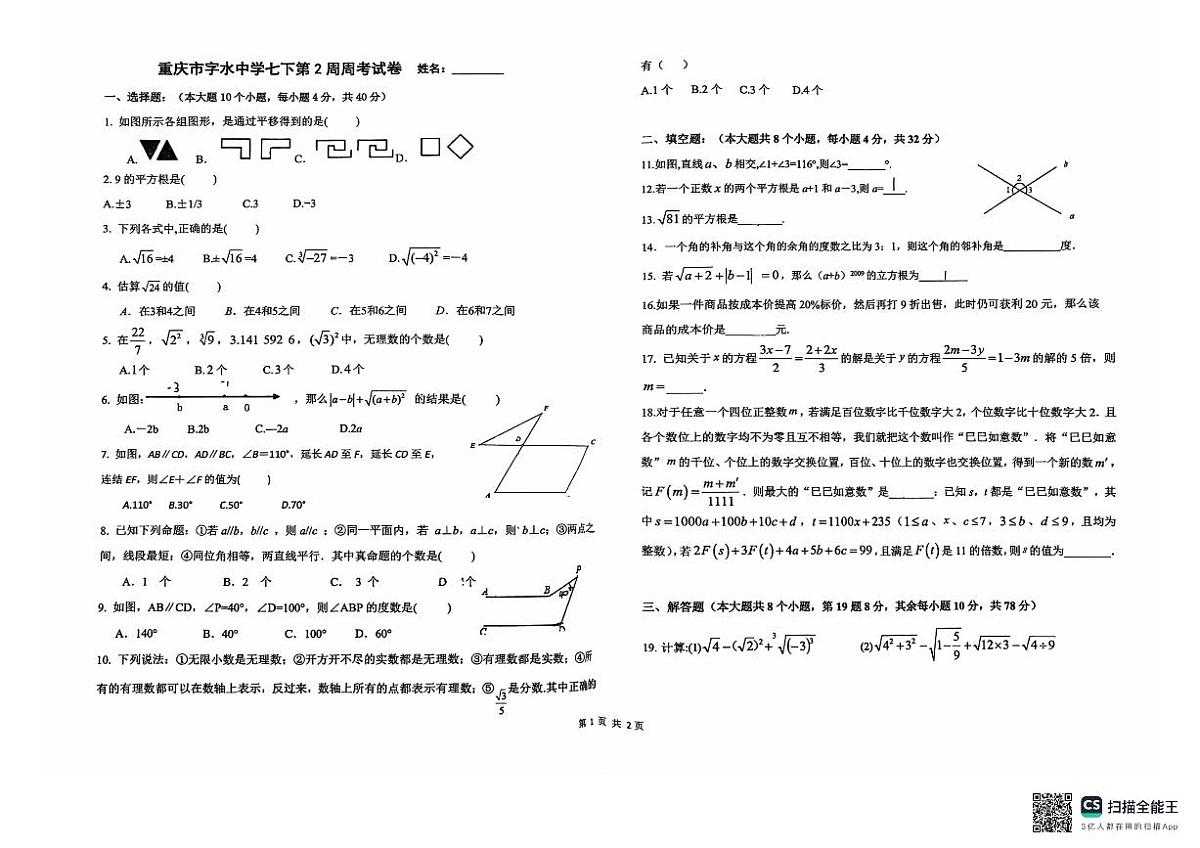 重庆市字水中学七下第2周周考试卷 姓名：________
一、选择题：（本大题10个小题，每小题4分，共40分）
1. 如图所示各组图形，是通过平移得到的是( )
A. B. C. D.
2. 9的平方根是( )
A.±3 B.±1/3 C.3 D.-3
3. 下列各式中,正确的是( )
A.√16=±4 B.±√16=4 C.∛-27=-3 D.√(-4)²=-4
4. 估算√24的值( )
A．在3和4之间 B．在4和5之间 C．在5和6之间 D．在6和7之间
5. 在22/7，√2²，∛9，3.141 592 6，(√3)²中，无理数的个数是( )
A.1个 B.2个 C.3个 D.4个
-3 -1
6. 如图: b a 0 ，那么|a-b|+√(a+b)² 的结果是( )
A.－2b B.2b C.—2a D.2a
7. 如图，AB∥CD，AD∥BC，∠B＝110°，延长AD至F，延长CD至E，
连结EF，则∠E＋∠F的值为( )
A.110° B.30° C.50° D.70°
F
E D C
A
8. 已知下列命题：①若a//b，b//c，则a//c；②同一平面内，若 a⊥b，a⊥c，则 b⊥c；③两点之
间，线段最短；④同位角相等，两直线平行．其中真命题的个数是( )
A．1 个 B．2 个 C． 3 个 D 个
9. 如图，AB∥CD，∠P=40°，∠D=100°，则∠ABP的度数是( )
A．140° B．40° C．100° D．60°
P
A B 40°
C D
10. 下列说法：①无限小数是无理数；②开方开不尽的实数都是无理数；③有理数都是实数；④所
有的有理数都可以在数轴上表示，反过来，数轴上所有的点都表示有理数；⑤√3/5是分数.其中正确的
有( )
A.1个 B.2个 C.3个 D.4个
二、填空题：（本大题共8个小题，每小题4分，共32分）
11.如图,直线a、b相交,∠1+∠3=116°,则∠3=_______°.
12.若一个正数x的两个平方根是a+1和a－3,则a=__1__.
b
2
1 3
a
13.√81的平方根是_______.
14．一个角的补角与这个角的余角的度数之比为3：1，则这个角的邻补角是________度．
15．若√a+2+|b-1| =0，那么（a+b）²⁰⁰⁹的立方根为___1___
16.如果一件商品按成本价提高20%标价，然后再打9折出售，此时仍可获利20元，那么该
商品的成本价是________元.
17．已知关于x的方程3x-7/2=2+2x/3的解是关于y的方程2m-3y/5=1-3m的解的5倍，则
m=______．
18.对于任意一个四位正整数m，若满足百位数字比千位数字大2，个位数字比十位数字大2．且
各个数位上的数字均不为零且互不相等，我们就把这个数叫作“巳巳如意数”．将“巳巳如意
数”m的千位、个位上的数字交换位置，百位、十位上的数字也交换位置，得到一个新的数m′，
记F(m)=m+m′/1111．则最大的“巳巳如意数”是_______；已知s，t都是“巳巳如意数”，其
中s=1000a+100b+10c+d，t=1100x+235（1≤a、x、c≤7，3≤b、d≤9，且均为
整数），若2F(s)+3F(t)+4a+5b+6c=99,且满足F(t)是11的倍数,则s的值为________．
三、解答题（本大题共8个小题，第19题8分，其余每小题10分，共78分）
19. 计算:(1)√4-(√2)²+∛(-3)³ (2)√4²+3²-√1-5/9+√12×3-√4÷9
第1页 共2页
CS 扫描全能王
3亿人都在用的扫描App